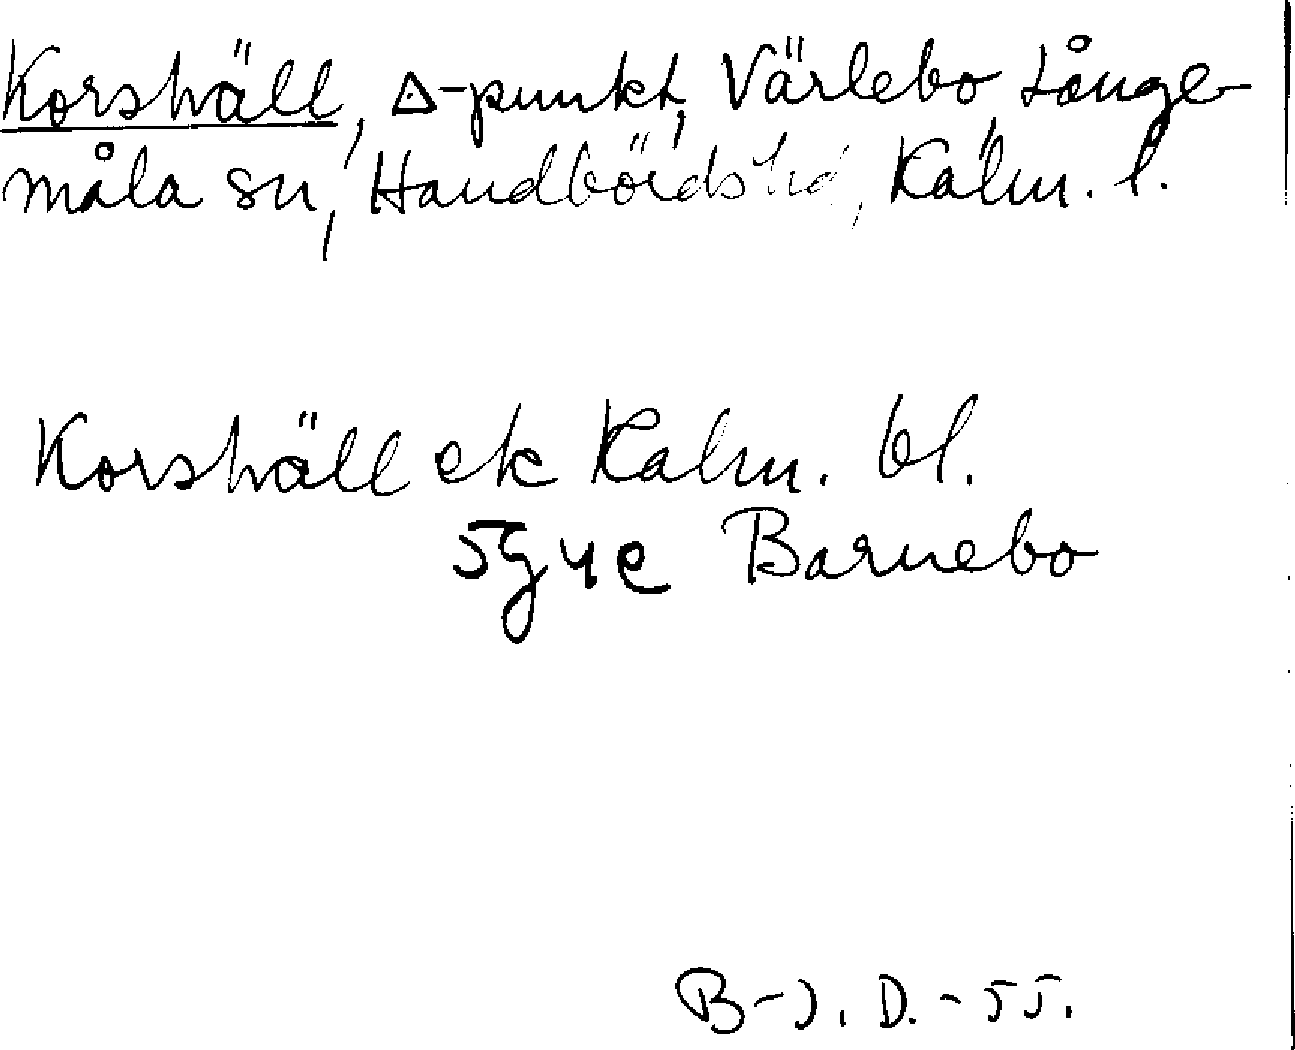 Korshäll, △-punkt, Värlebo, Långe-
måla sn, Handbörds hd, Kalm. l.
Korshäll ek Kalm. bl.
5g4e Barnebo
B-J. D. -55.